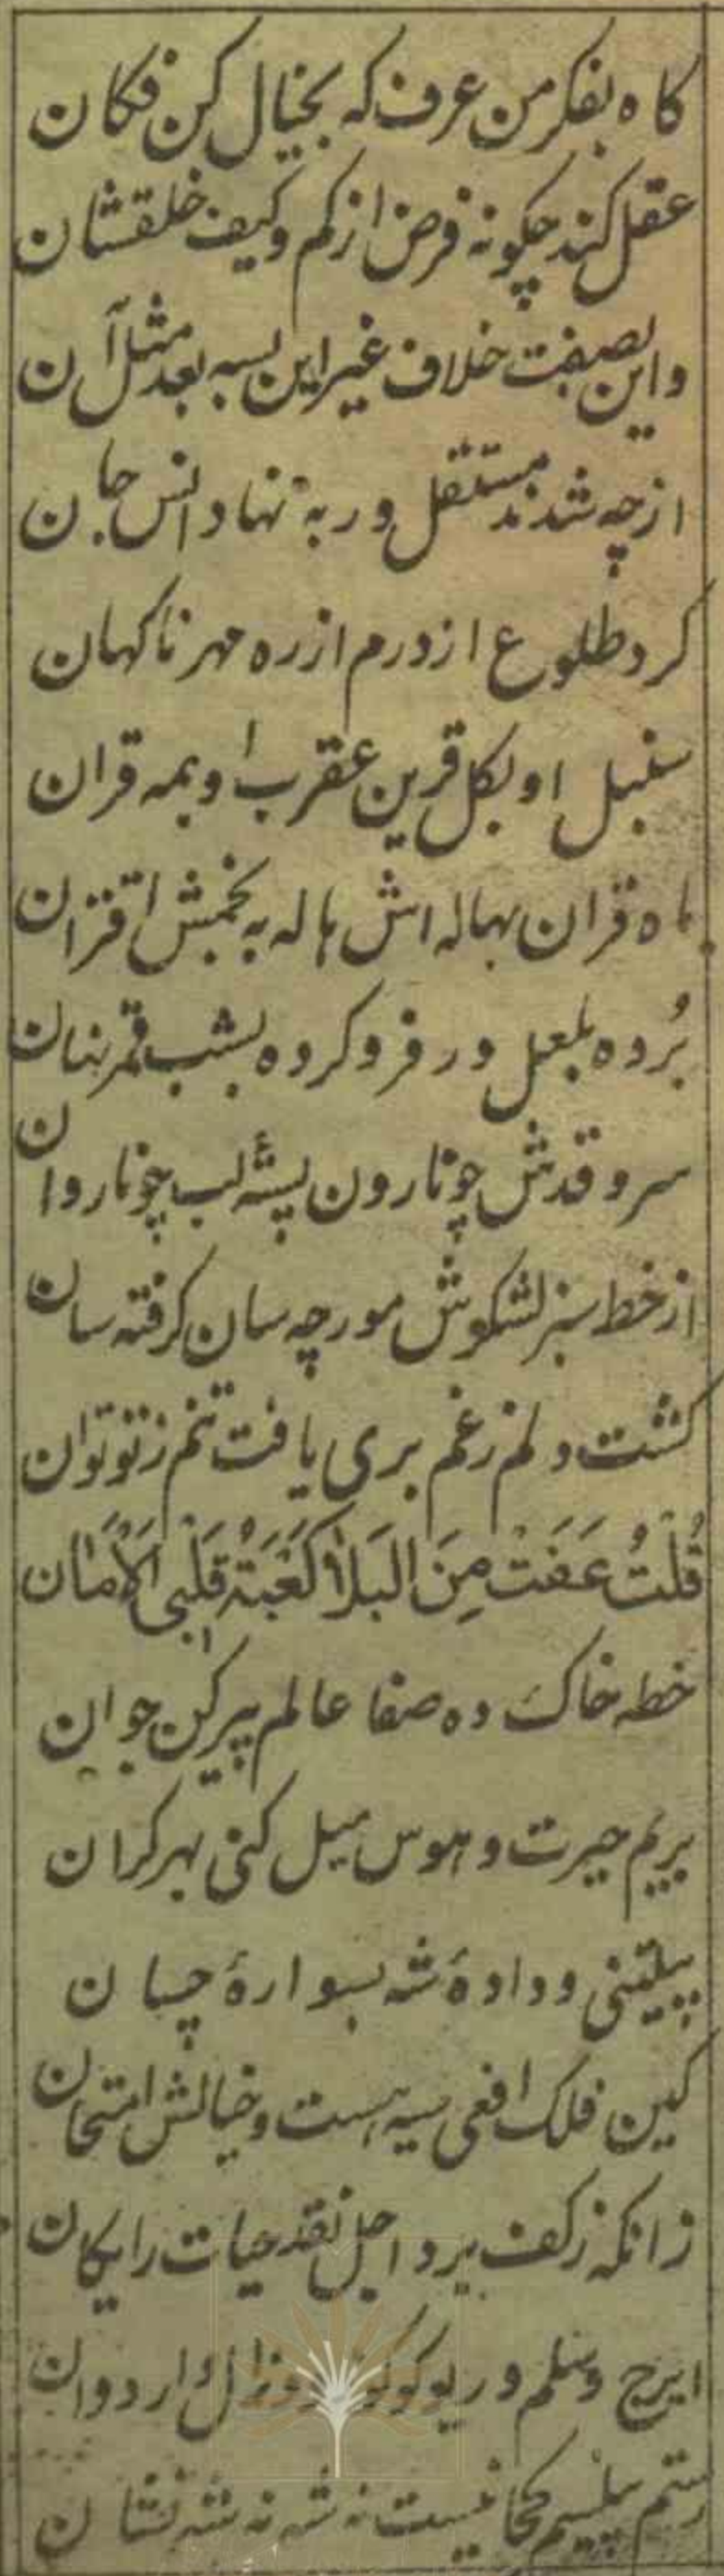 کاه بفکر من عرف که بخیال کن فکان
عقل کند چکونه فرض از کم و کیف خلقشان
واین بصفت خلاف غیر این بسه بعد مثل آن
ازچه شدند مستقل در به نهاد انس جان
کرد طلوع از درم از ره مهر ناکهان
سنبل او بکل قرین عقرب او بمه قران
ماه قران بهاله اش هاله به نجمش اقتران
بُرده بلعل در فرو کرده بشب قمر نهان
سرو قدش چو نارون پشهٔ لب چو ناروان
از خط سبز لشکرش مورچه سان کرفته سان
کشت دلم زغم بری یافت تنم ز تو توان
قُلْتُ عَفَتْ مِنَ البَلَا کَعْبَةُ قَلْبِیَ الْأَمَان
خطه خاک ده صفا عالم پیر کن جوان
بریم حیرت و هوس میل کنی بهر کران
پیلتنی و دادهٔ شه بسوارهٔ چسان
کین فلک افعی سیه هست و خیالش امتحان
زانکه زکف برد اجل نقد حیات رایکان
ایرج و سلم و ریو کو زال اردوان
رستم پیلسم کجا نیست نه شه نه شه نشان